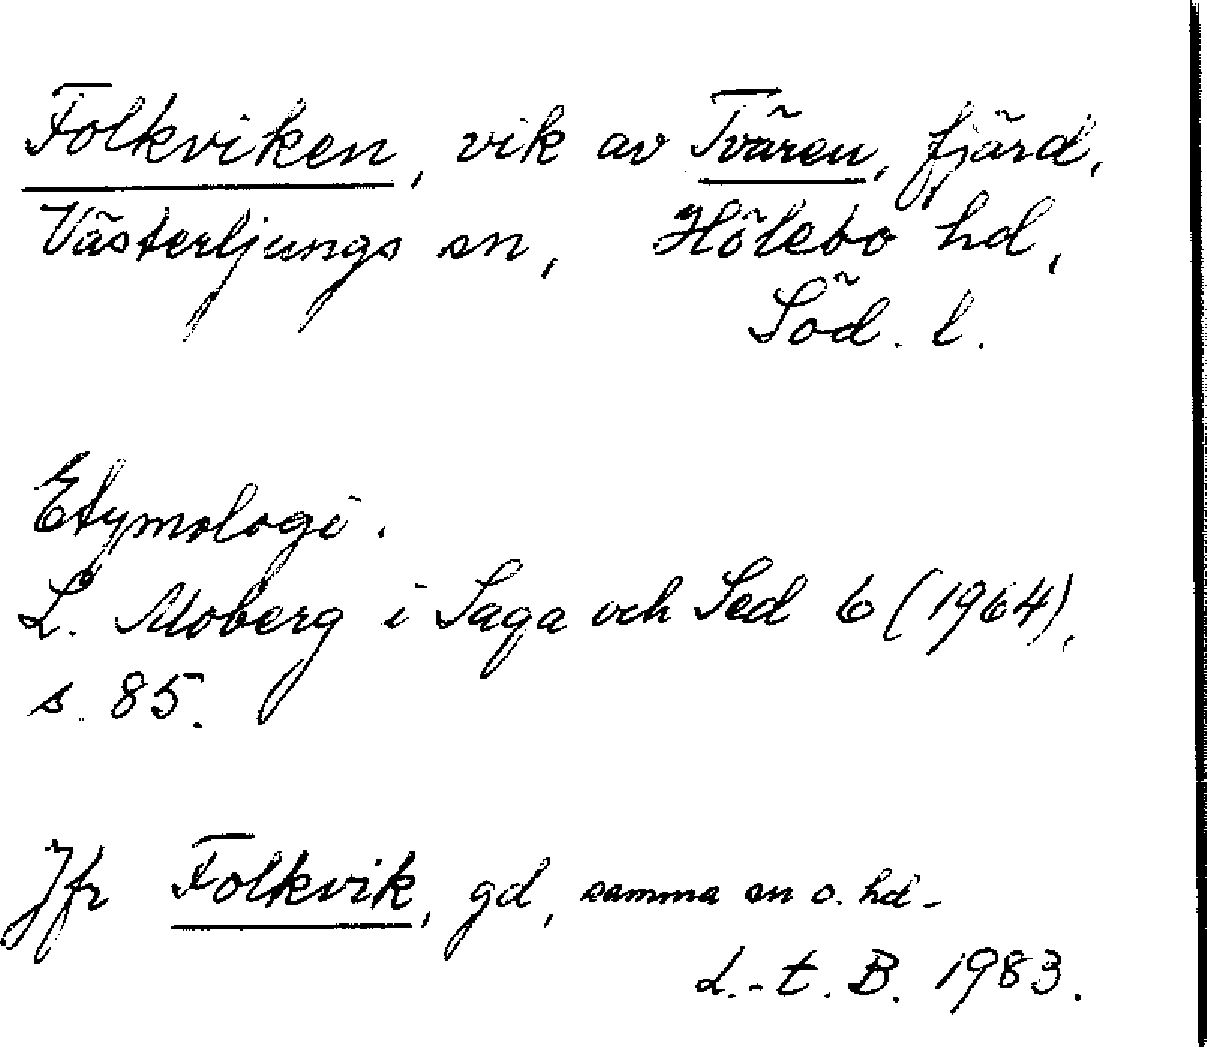 Folkviken, vik av Tvären, fjärd,
Västerljungs sn, Hölebo hd,
Söd. l.
Etymologi.
L. Moberg i Saga och Sed 6 (1964),
s. 85.
Jfr Folkvik, gd, samma sn o. hd.
L.-t. B. 1983.